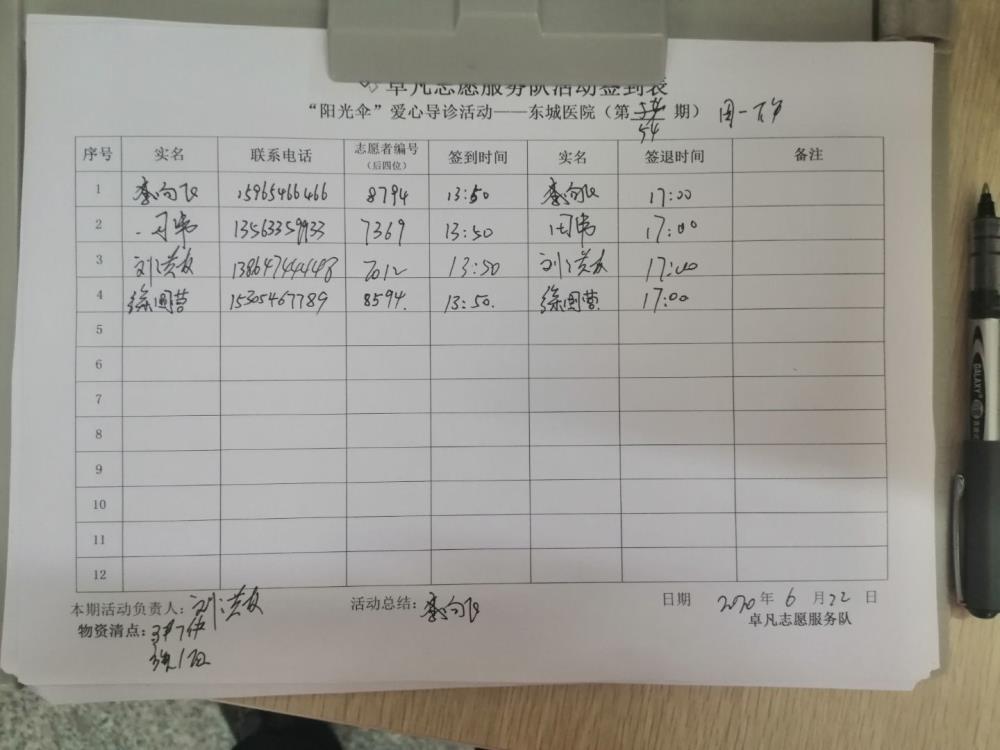 卓凡志愿服务队活动签到表
“阳光伞”爱心导诊活动——东城医院（第 54 期） 周一下午
序号 实名 联系电话 志愿者编号（后四位） 签到时间 实名 签退时间 备注
1 15965466466 8794 13:50 17:00
2 13563359933 7369 13:50 17:00
3 刘洪敏 13864744448 7012 13:50 刘洪敏 17:00
4 徐国营 15305467789 8594 13:50. 徐国营 17:00
5
6
7
8
9
10
11
12
本期活动负责人：刘洪敏 活动总结： 日期 2020 年 6 月 22 日
物资清点： 卓凡志愿服务队
GALAXY